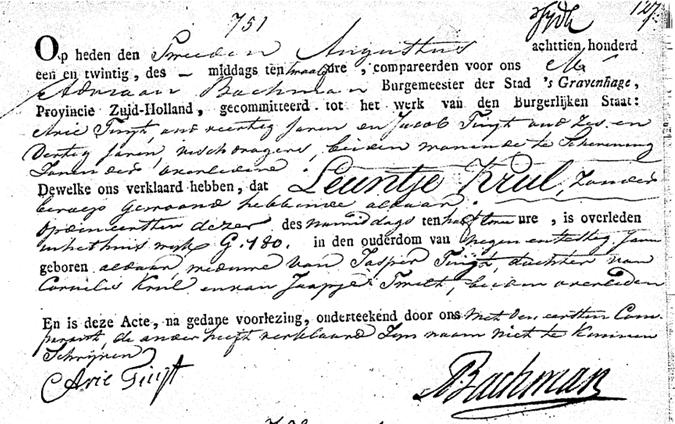 751
127
Op heden den Tweeden Augustus achttien honderd
een en twintig, des – middags ten twaalf ure, compareerden voor ons Mr
Adriaan Bachman Burgemeester der Stad 's Gravenhage,
Provincie Zuid-Holland, gecommitteerd tot het werk van den Burgerlijken Staat:
Arie Tuijt, oud veertig Jaren en Jacob Tuijt oud Zes en
Dertig Jaren, visschdragers, beiden wonende te Schevening
Zonen der overledene
Dewelke ons verklaard hebben, dat Leuntje Krul, Zonder
beroep gewoond hebbende aldaar
op den eersten dezer des namiddags ten half twee ure, is overleden
in het huis wijk G. 180. in den ouderdom van negen en zestig Jaren
geboren aldaar weduwe van Jasper Tuijt, dochter van
Cornelis Krul en van Jaapje Smelt, beiden overleden
En is deze Acte, na gedane voorlezing, onderteekend door ons met den eersten Com
parant, de ander heeft verklaard Zijn naam niet te kunnen
Schrijven
Arie Tuijt
ABachman